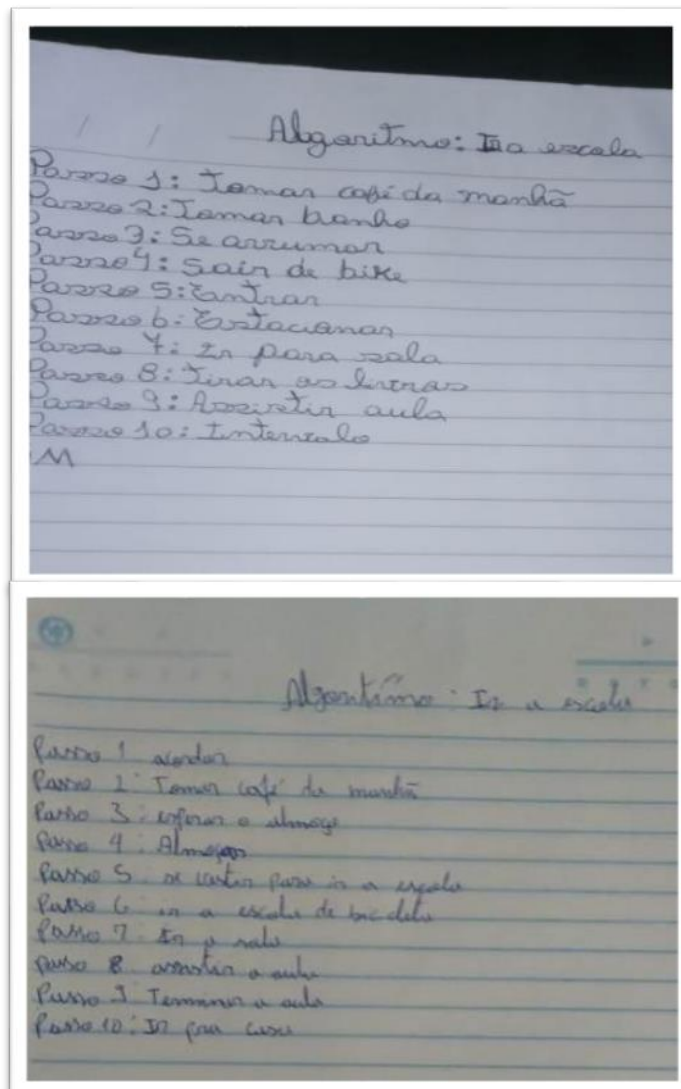 / / Algoritmo: Ir a escola
Passo 1: Tomar café da manhã
Passo 2: Tomar banho
Passo 3: Se arrumar
Passo 4: Sair de bike
Passo 5: Entrar
Passo 6: Estacionar
Passo 7: Ir para sala
Passo 8: Tirar os livros
Passo 9: Assistir aula
Passo 10: Intervalo
M
Algoritimo: Ir a escola
Passo 1 acordar
Passo 2: Tomar café da manhã
Passo 3: esperar o almoço
Passo 4: Almoçar
Passo 5 se vestir para ir a escola
Passo 6 ir a escola de bicicleta
Passo 7: Ir a sala
Passo 8 assistir a aula
Passo 9 Terminar a aula
Passo 10: Ir pra casa